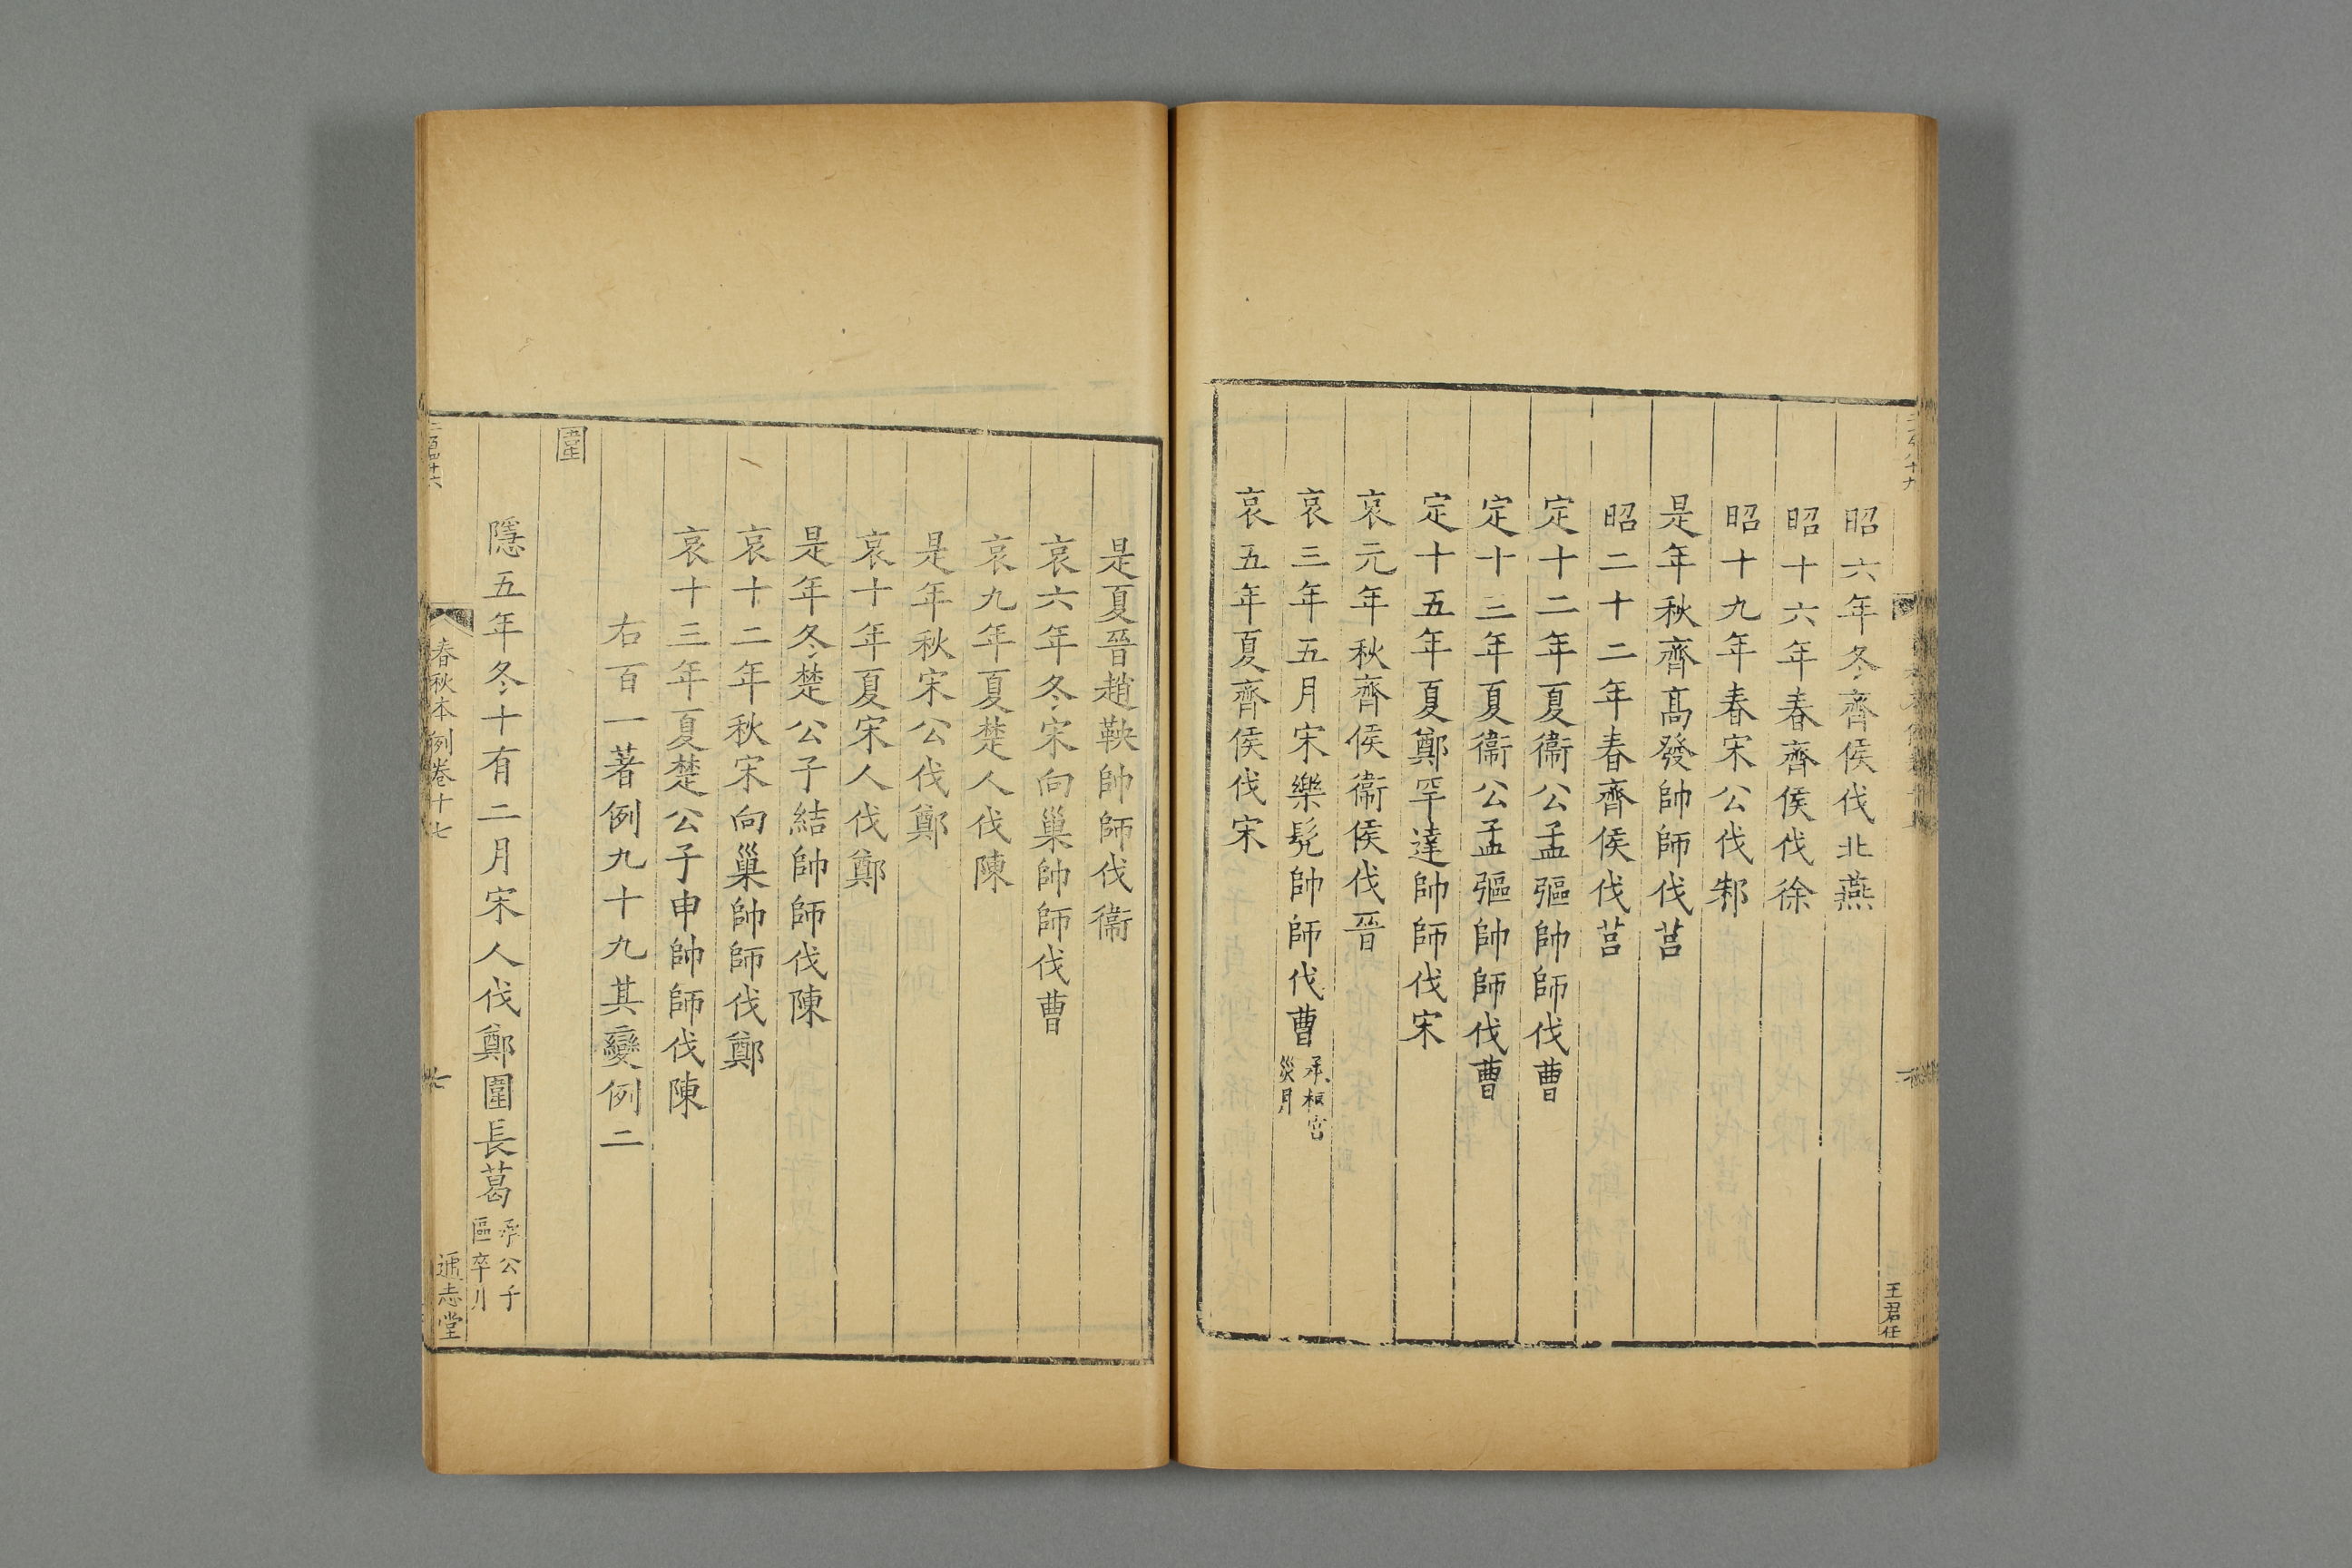 昭六年冬齊侯伐北燕
昭十六年春齊侯伐徐
昭十九年春宋公伐邾
是年秋齊髙發帥師伐莒
昭二十二年春齊侯伐莒
定十二年夏衞公孟彄帥師伐曹
定十三年夏衞公孟彄帥師伐曹
定十五年夏鄭罕達帥師伐宋
哀元年秋齊侯衞侯伐晉
哀三年五月宋樂髠帥師伐曹
承桓宮
災月
哀五年夏齊侯伐宋
王君任
是夏晉趙鞅帥師伐衞
哀六年冬宋向巢帥師伐曹
哀九年夏楚人伐陳
是年秋宋公伐鄭
哀十年夏宋人伐鄭
是年冬楚公子結帥師伐陳
哀十二年秋宋向巢帥師伐鄭
哀十三年夏楚公子申帥師伐陳
右百一著例九十九其變例二
圍
隱五年冬十有二月宋人伐鄭圍長葛
承公子
彄卒月
春秋本例卷十七
通志堂